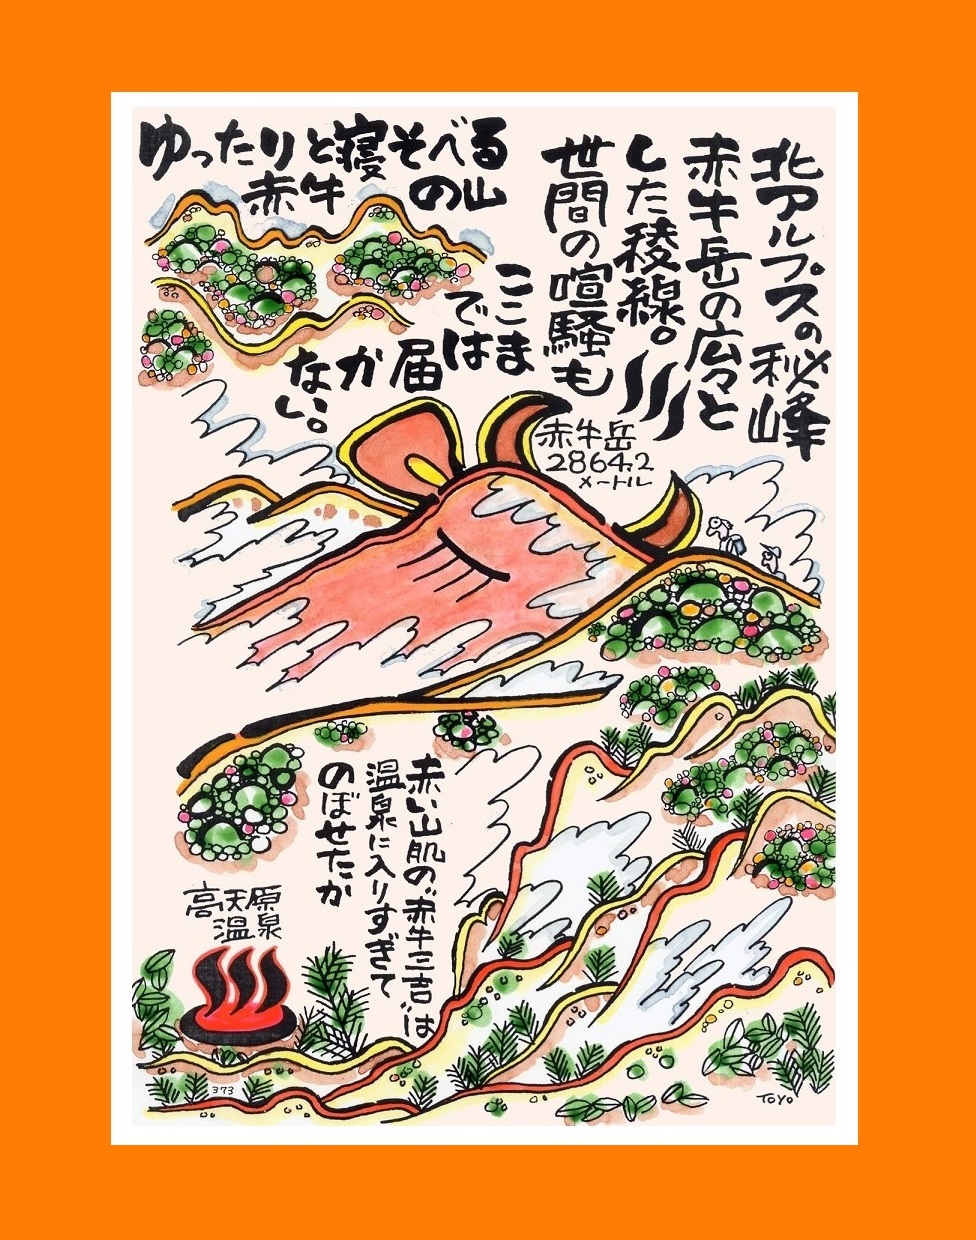 ゆったりと寝そべる
赤牛の山
北アルプスの秘峰
赤牛岳の広々と
した稜線。
世間の喧騒も
ここま
では
届
か
ない。
赤牛岳
2864.2
メートル
赤い山肌の〝赤牛三吉〟は
温泉に入りすぎて
のぼせたか
高天原
温泉
373
TOYO